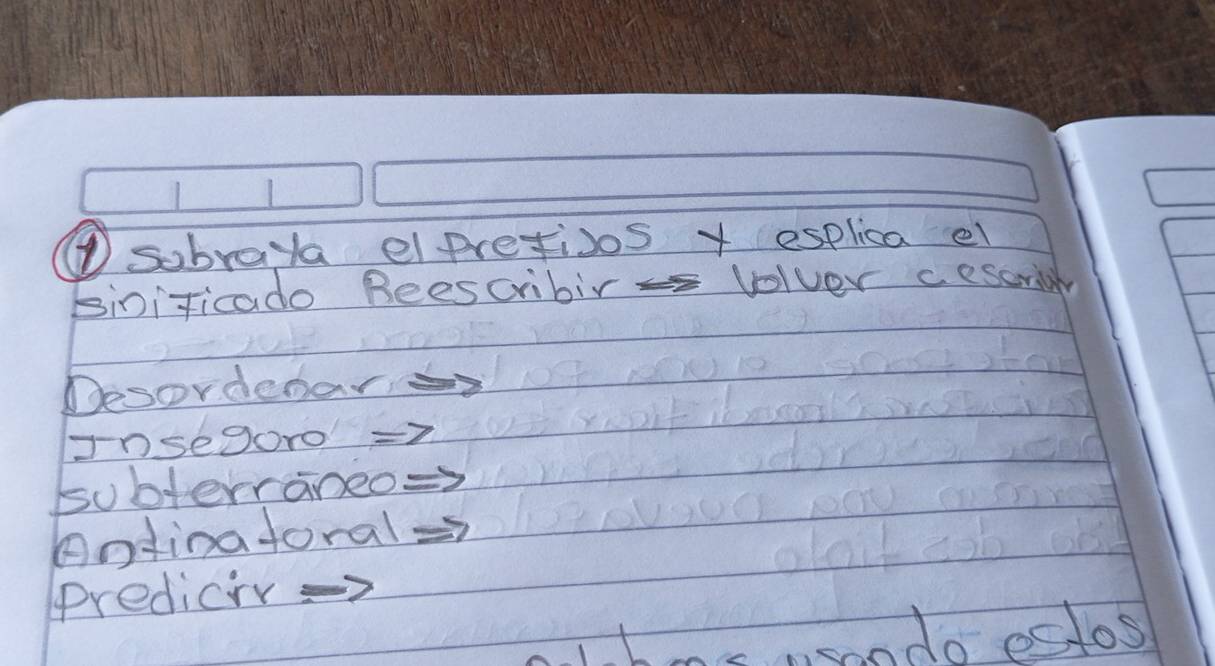 1 subraya el prefijos y esplica el
sinificado Reescribir => Volver a escribir
Desordenar =>
Inseguro =>
subterráneo =>
Antinatural =>
predicir =>
usando estos